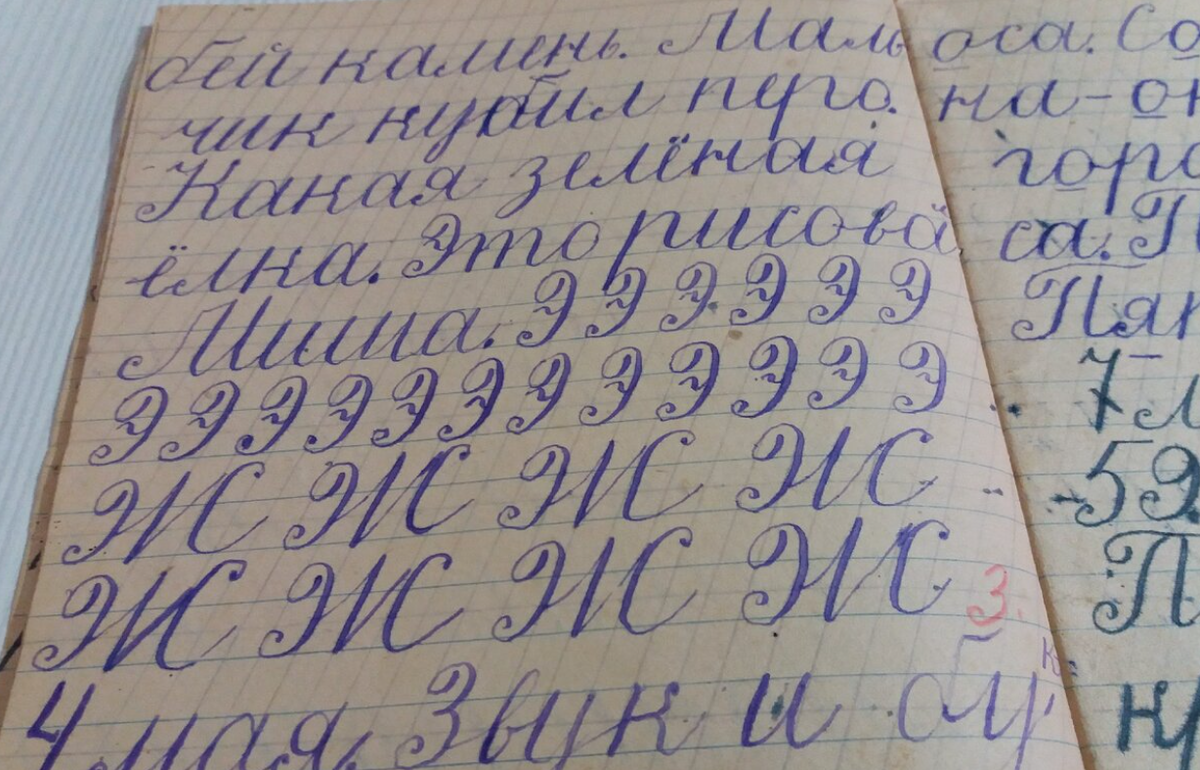 бей камень. Маль
чик кубил перо.
Какая зелёная
ёлка. Это рисова
Миша. Э Э Э Э Э Э
Э Э Э Э Э Э Э Э Э Э Э
Ж Ж Ж Ж
Ж Ж Ж Ж 3
4 мая. Звук и бук
оса. Со
на-ок
горо
са. П
Пян
7 л
-59
П
кр